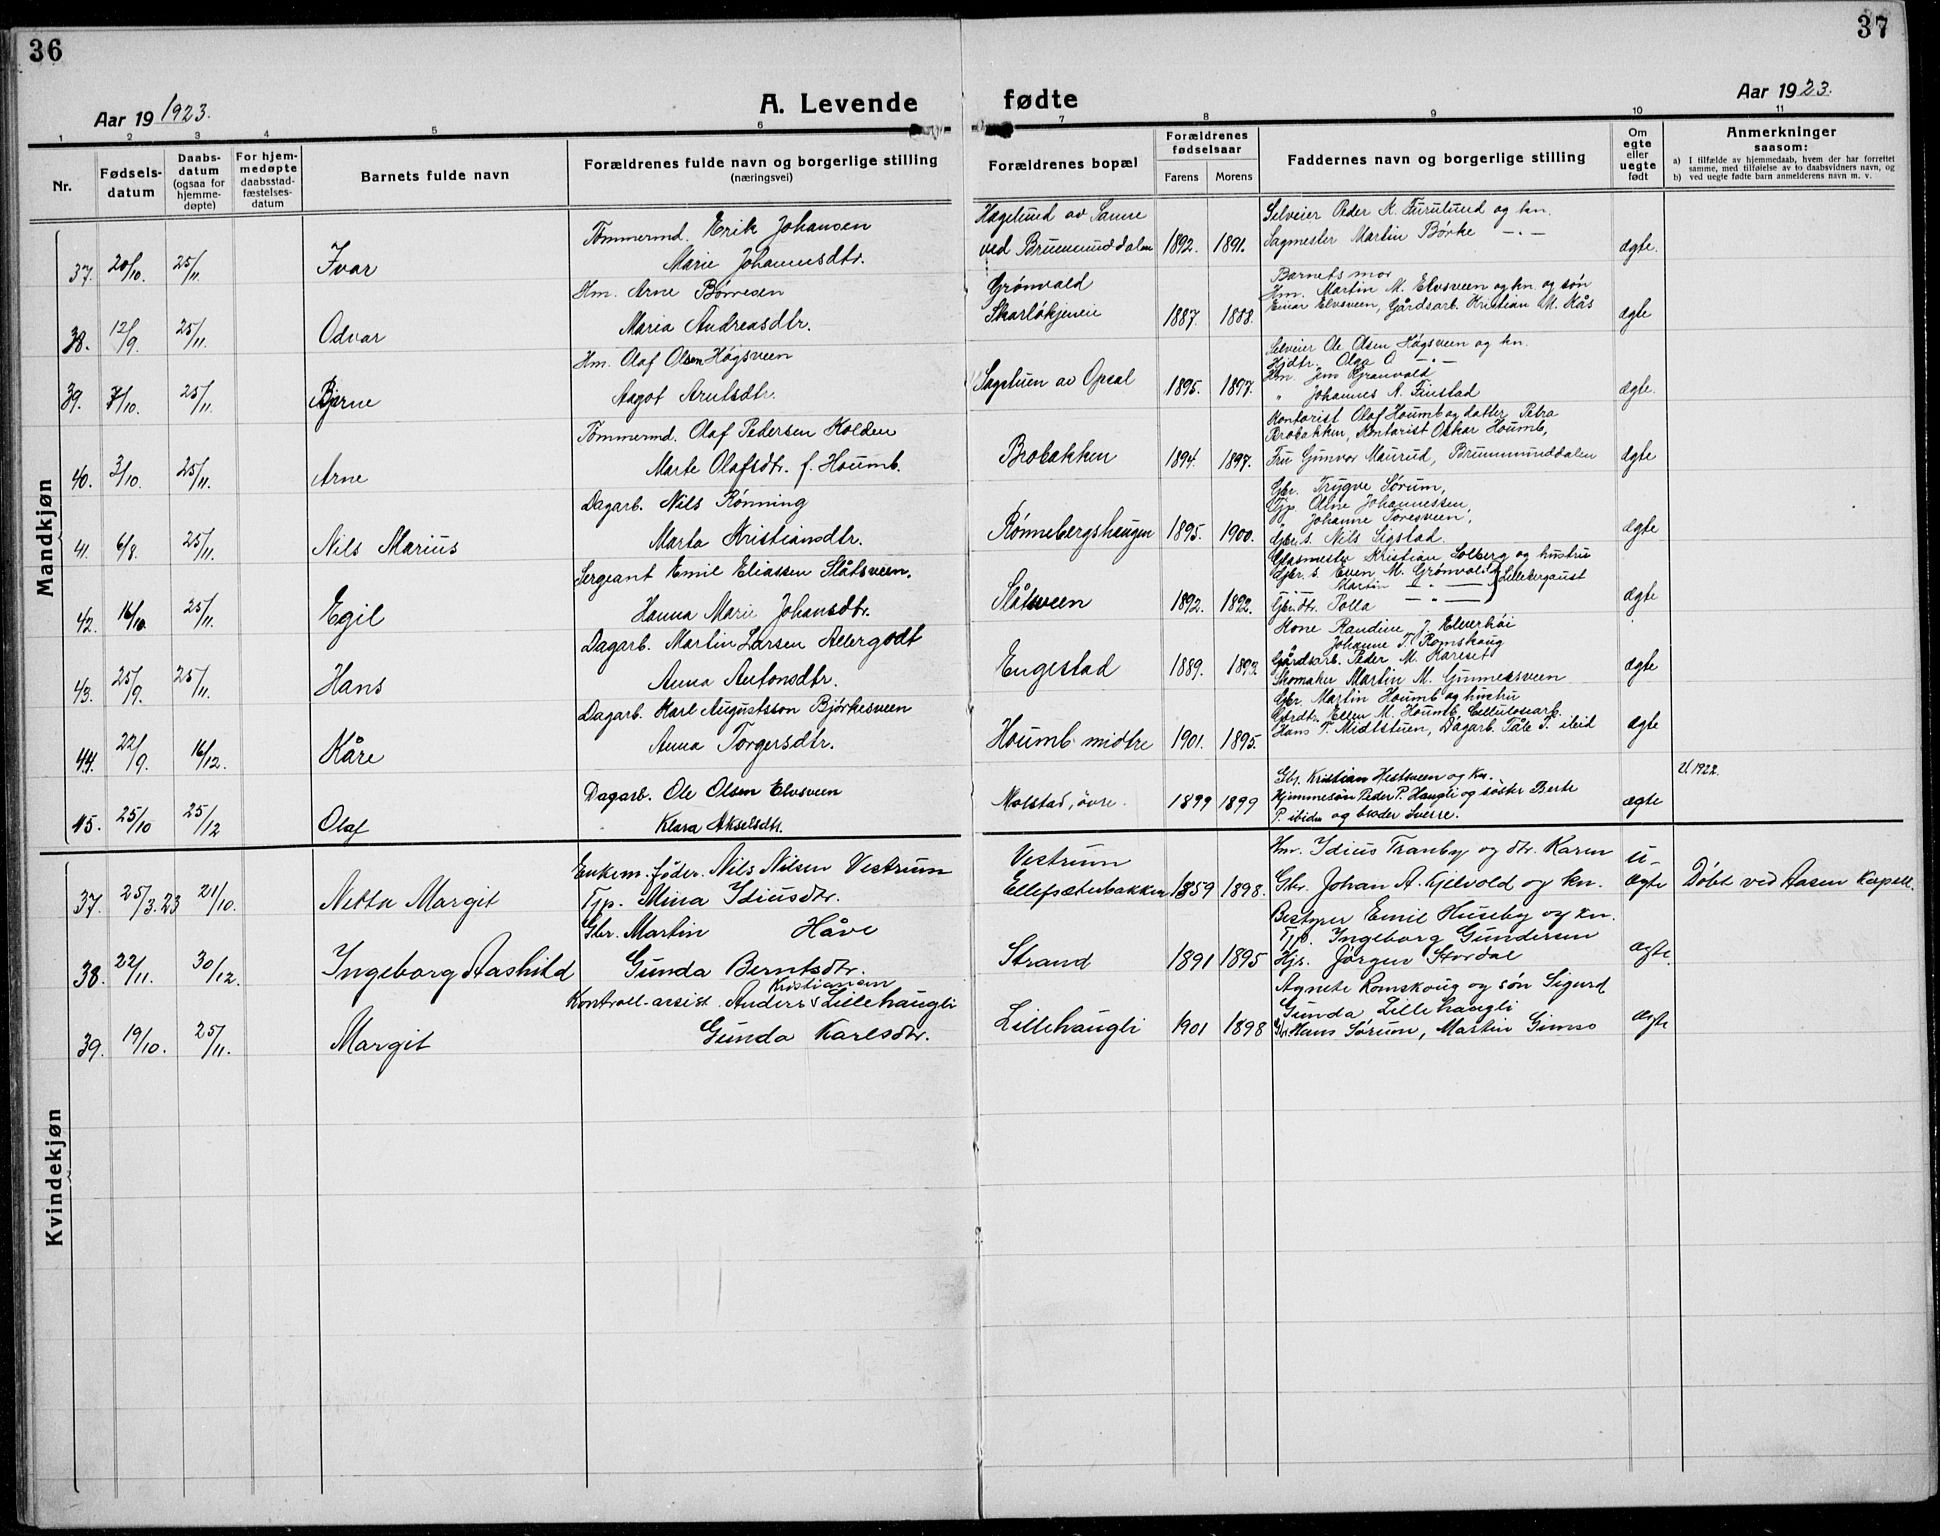 36
37
Aar 19 1923.
A. Levende fødte
Aar 1923.
1 2 3 4 5 6 7 8 9 10 11
Nr.
Fødsels-
datum
Daabs-
datum
(ogsaa for
hjemme-
døpte)
For hjem-
medøpte
daabsstad-
fæstelses-
datum
Barnets fulde navn
Forældrenes fulde navn og borgerlige stilling
(næringsvei)
Forældrenes bopæl
Forældrenes
fødselsaar
Farens Morens
Faddernes navn og borgerlige stilling
Om
egte
eller
uegte
født
Anmerkninger
saasom:
a) I tilfælde av hjemmedaab, hvem der har forrettet
samme, med tilføielse av to daabsvidners navn, og
b) ved uegte fødte barn anmelderens navn m. v.
Mandkjøn
37. 20/10. 25/11. Ivar
Tømmermd. Erik Johansen
Marie Johannesdtr.
Hagelund av Sanne
ved Brummunddalen
1892. 1891.
Selveier Peder K. Furulund og kn.
Sagmester Martin Børke -"-
ægte.
38. 12/9. 25/11. Odvar
Hm. Arne Børresen
Maria Andreasdtr.
Grønvald
Skarløkjeneie
1887. 1888.
Barnets mor
Hm. Martin M. Elvsveen og kn. og søn
Einar Elvsveen, Gårdsarb. Kristian M. Kås
ægte
39. 7/10. 25/11. Bjarne
Hm. Olaf Olsen Høgsveen
Aagot Arntsdtr.
Sagstuen av Opsal
1895. 1897.
Selveier Ole Olsen Høgsveen og kn.
Hjdtr. Olga O. -"-
Hm. Jens Granvold
" Johannes A. Finstad
ægte.
40. 3/10. 25/11. Arne
Tømmermd. Olaf Pedersen Kolden
Marte Olafsdtr. f. Houmb.
Brobakken
1894. 1897.
Kontorist Olaf Houmb og datter Petra
Brobakken, Kontorist Oskar Houmb,
Fru Gunvor Maurud, Brummunddalen
ægte
41. 6/8. 25/11. Nils Marius
Dagarb. Nils Rønning
Marta Kristiansdtr.
Rønnebergshaugen
1895. 1900.
Gbr. Trygve Sørum,
Tjp. Oline Johannessen,
Johanne Toresveen,
Gbr.s. Nils Sigstad.
ægte
42. 16/10. 25/11. Egil
Sergeant Emil Eliassen Slåtsveen.
Hanna Marie Johansdtr.
Slåtsveen
1892. 1892.
Glasmester Kristian Solberg og hustru
Gbr. s. Even M. Grønvold
Martin -"-
Gbr.dtr. Tolla -"-
Lillebergaust
ægte
43. 25/9. 25/11. Hans
Dagarb. Martin Larsen Allergodt
Anna Antonsdtr.
Engestad
1889. 1893.
Kone Randine J. Elverhøi
" Johanne T. Romskaug
Gårdsarb. Peder M. Kareset
Skomaker Martin M. Gunnersveen
ægte
44. 22/9. 16/12. Kåre
Dagarb. Karl Augustsson Bjørkesveen
Anna Torgersdtr.
Houmb midtre
1901. 1895.
Gbr. Martin Houmb og hustru
Gbrdtr. Ellen M. Houmb, Cellulosearb.
Hans T. Midtstuen, Dagarb. Tåle T. ibid
ægte
45. 25/10 25/12 Olaf
Dagarb. Ole Olsen Elvsveen
Klara Akselsdtr.
Molstad, øvre.
1899 1899
Gbr. Kristian Hestsveen og kn.
Hjemmesøn Peder P. Haugli og søster Berte
P. ibidm og broder Sverre.
ægte
V. 1922.
Kvindekjøn
37. 25/3. 23 21/10. Netta Margit
Enkem. føder. Nils Nilsen Vestrum
Tjp. Mina Idiusdtr.
Vestrum
Ellefsæterbakken
1859 1898.
Hm. Idius Tranby og dtr. Karen
Gbr. Johan A. Kjelvold og kn.
u-
ægte
Døbt ved Aasen Kapell.
38. 22/11. 30/12. Ingeborg Aashild
Gbr. Martin Håve
Gunda Berntsdtr.
Strand
1891 1895
Bestyrer Emil Huseby og kn.
Tjp. Ingeborg Gundersen
Hjs. Jørgen Stordal
ægte.
39. 19/10. 25/11. Margit
Kontroll-assist. Anders Kristiansen Lillehaugli
Gunda Karlsdtr.
Lillehaugli
1901 1898
Agnete Romskoug og søn Sigurd
Gunda Lillehaugli
Gbr. Hans Sørum, Martin Gimso
ægte